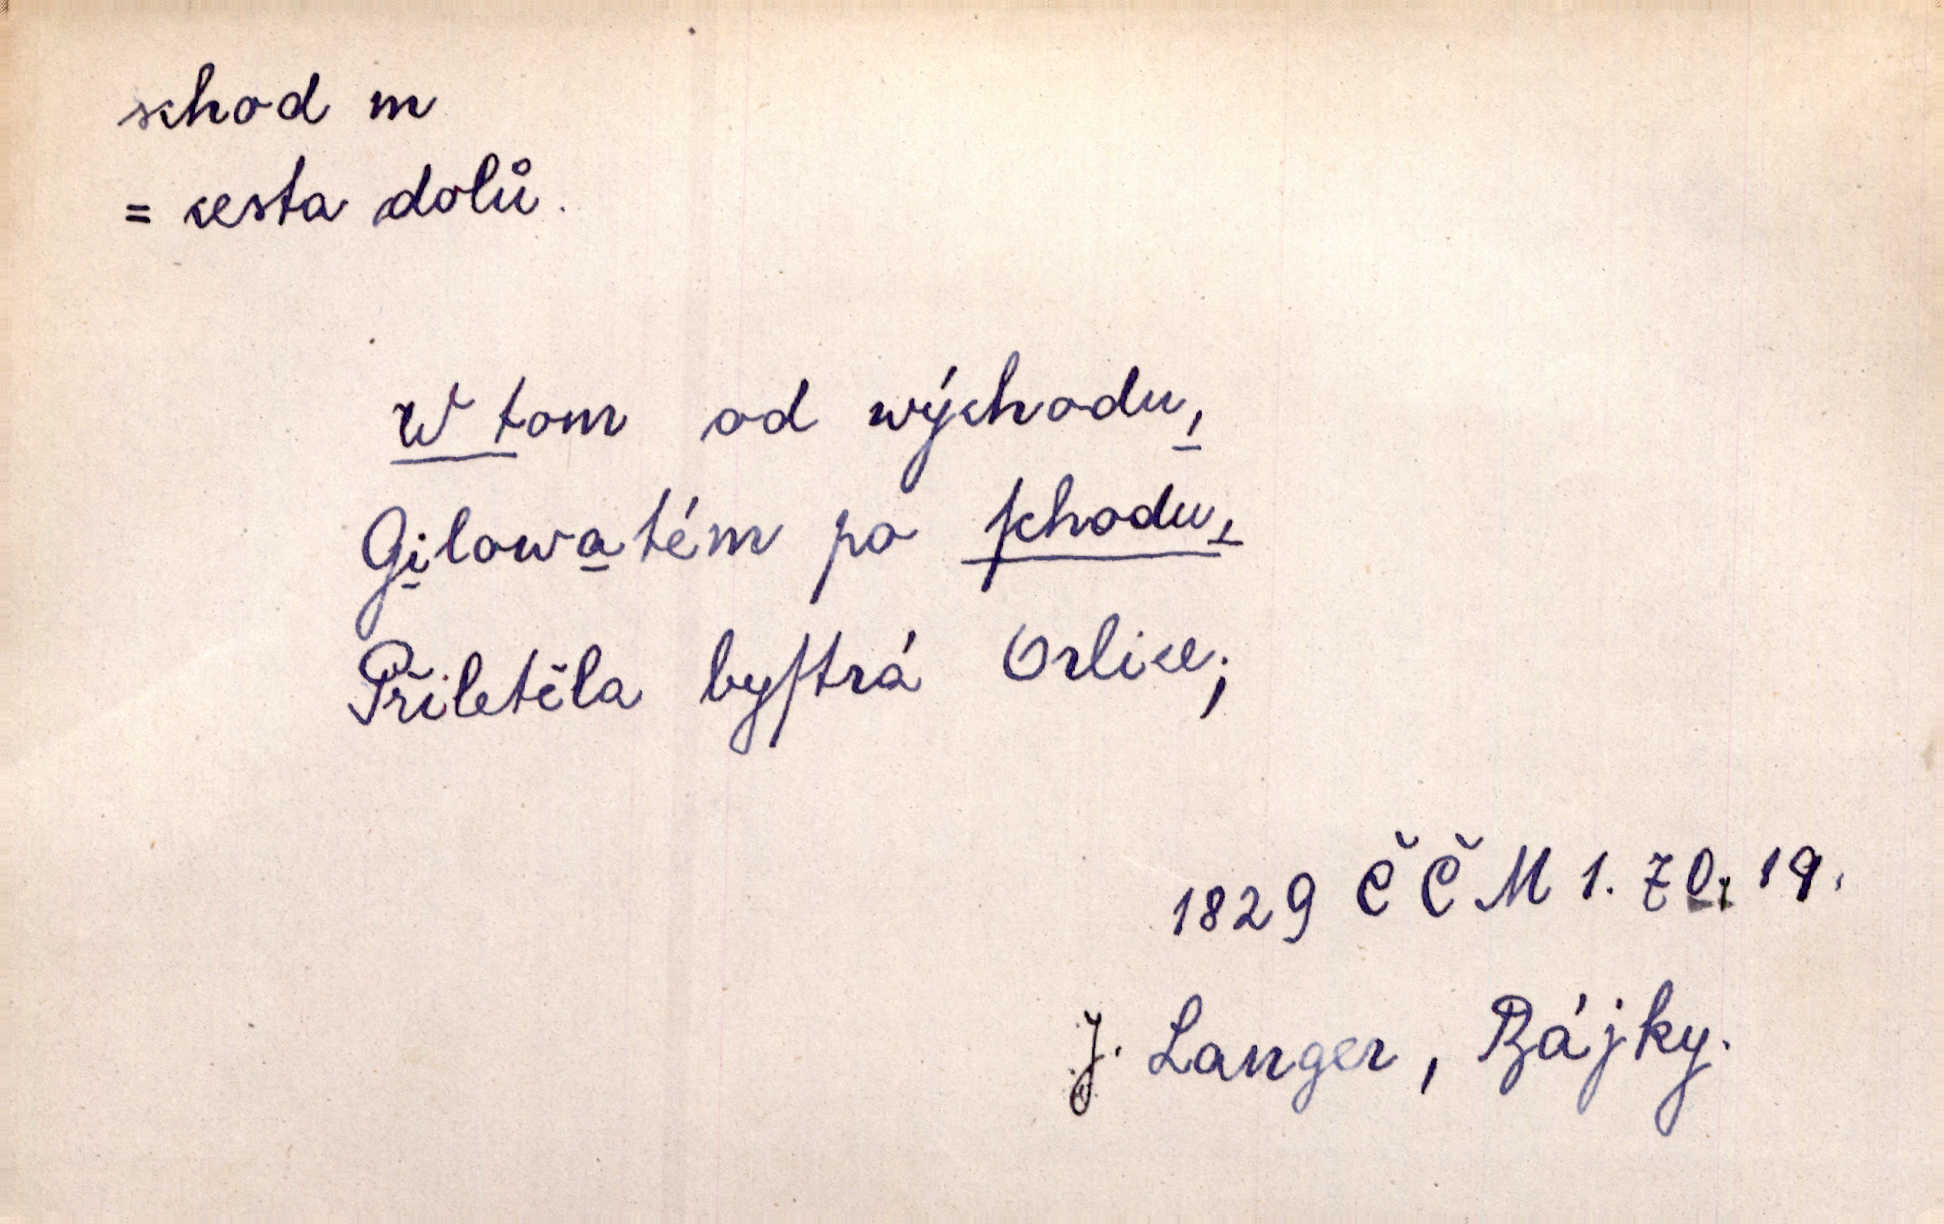 schod m
= cesta dolů.
W tom od wýchodu,
Gilowatém po ſchodu,
Přiletěla byſtrá Orlice;
1829 ČČM 1. 70, 19.
J. Langer, Bájky.